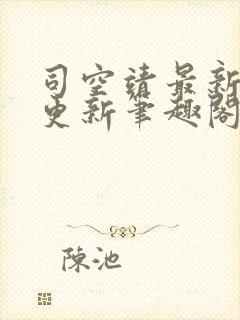 司空靖最新
更新笔趣閣
陳池